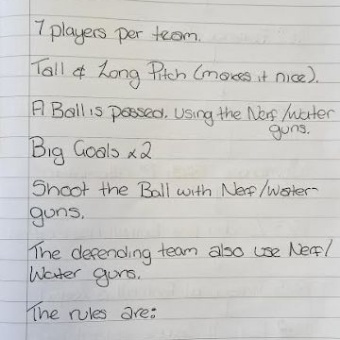 7 players per team.
Tall & Long Pitch (makes it nice).
A Ball is passed. using the Nerf/Water
guns.
Big Goals x2
Shoot the Ball with Nerf/Water-
guns.
The defending team also use Nerf/
Water guns.
The rules are: